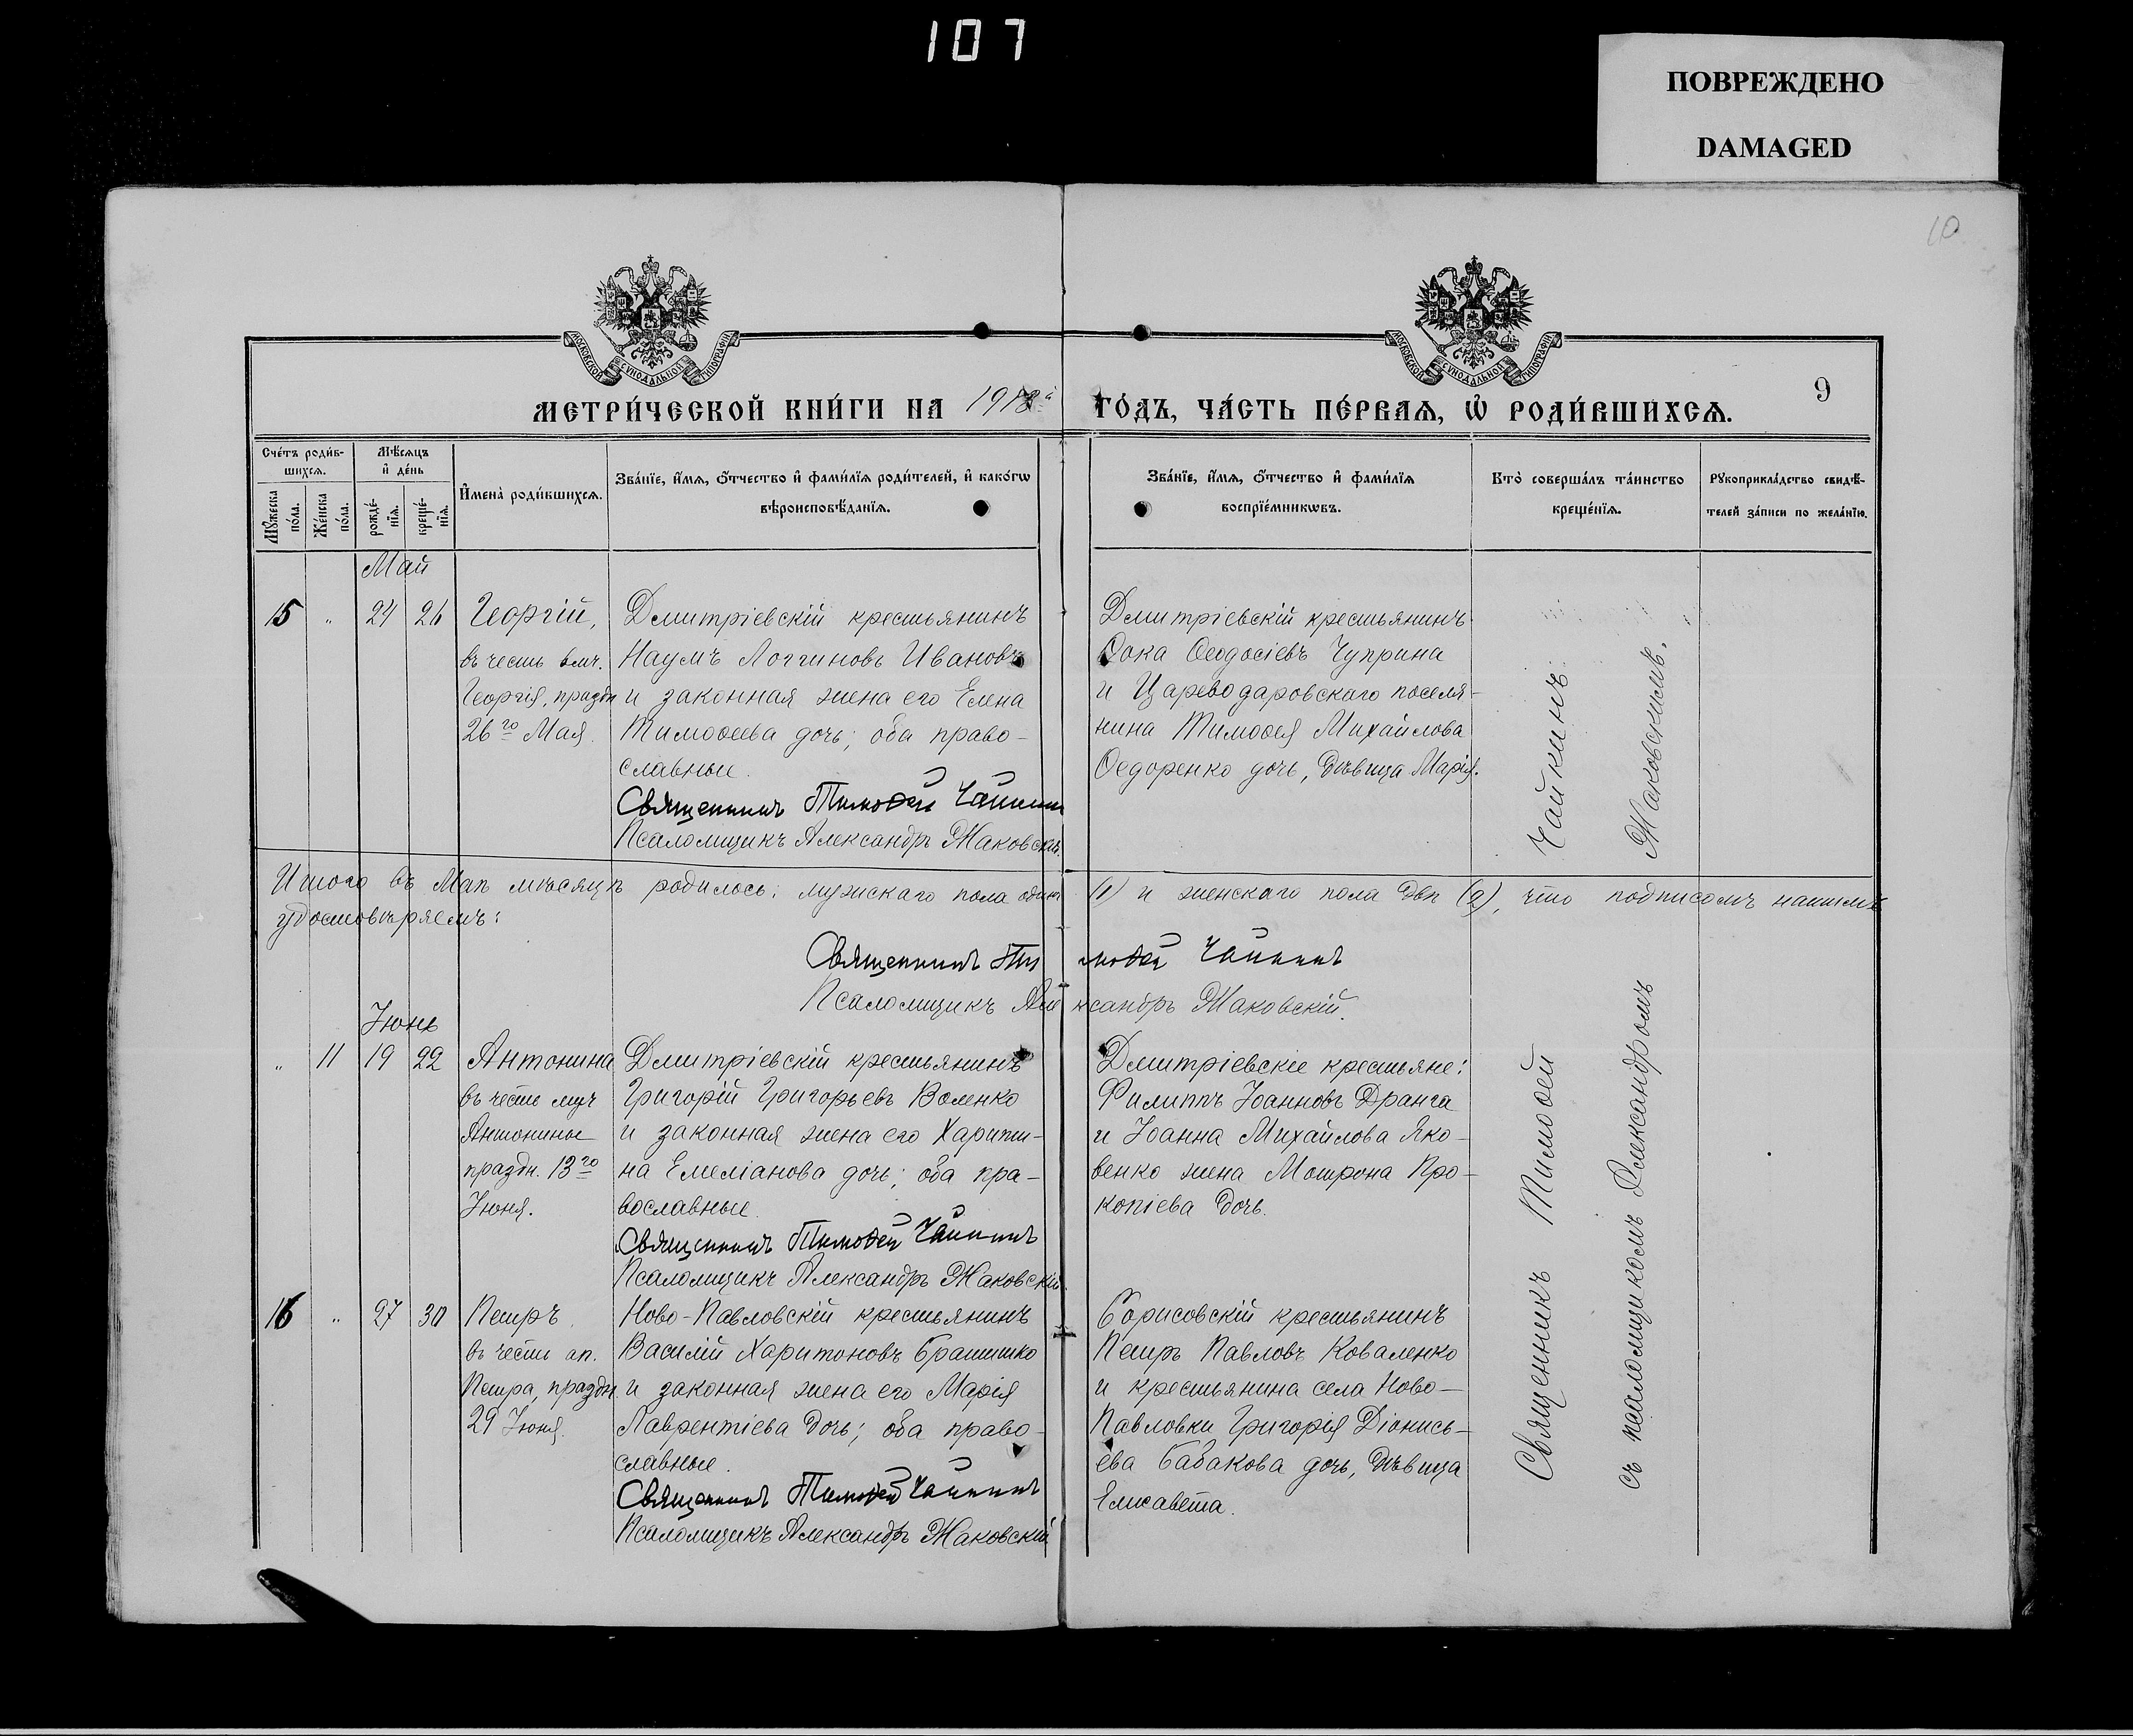 107
ПОВРЕЖДЕНО
DAMAGED
10
МОСКОВСКОЙ СѴНОДАЛЬНОЙ ТИПОГРАФІИ
МОСКОВСКОЙ СѴНОДАЛЬНОЙ ТИПОГРАФІИ
9
МЕТРИ́ЧЕСКОЙ КНИ́ГИ НА 1912й ГО́ДЪ, ЧА́СТЬ ПЕ́РВАѦ, Ѡ҆ РОДИ́ВШИХСѦ.
Сче́тъ роди́в-
шихсѧ.
Мѣ́сѧцъ
и҆ де́нь
Мꙋ́жеска
по́ла.
Же́нска
по́ла.
рожде́-
нїѧ.
креще́-
нїѧ.
И҆мена̀ роди́вшихсѧ.
Зва́нїе, и҆́мѧ, ѻ҆́тчество и҆ фами́лїѧ роди́телей, и҆ како́гѡ
вѣроисповѣ́данїѧ.
Зва́нїе, и҆́мѧ, ѻ҆́тчество и҆ фами́лїѧ
воспрїе́мникѡвъ.
Кто̀ соверша́лъ та́инство
креще́нїѧ.
Рꙋкоприкла́дство свидѣ́-
телей за́писи по жела́нїю.
Май
15 " 24 26
Георгій,
въ честь влмч.
Георгія, праздн
26го Мая.
Дмитріевскій крестьянинъ
Наумъ Логгиновъ Ивановъ
и законная жена его Елена
Тимоѳеева дочь; оба право-
славные.
Священникъ Тимоѳей Чайкинъ
Псаломщикъ Александръ Маковскій.
Дмитріевскій крестьянинъ
Ѳока Ѳеодосіевъ Чуприна
и Цареводаровскаго поселя-
нина Тимоѳея Михайлова
Ѳедоренко дочь, дѣвица Марія.
Итого въ Маѣ мѣсяцѣ родилось: мужскаго пола одинъ (1) и женскаго пола двѣ (2), что подписомъ нашимъ
удостовѣряемъ:
Священникъ Тимоѳей Чайкинъ
Псаломщикъ Александръ Маковскій.
Іюнь
" 11 19 22
Антонина
въ честь муч
Антонины
праздн. 13го
Іюня.
Дмитріевскій крестьянинъ
Григорій Григорьевъ Воленко
и законная жена его Харити-
на Емеліанова дочь; оба пра-
вославные.
Священникъ Тимоѳей Чайкинъ
Псаломщикъ Александръ Маковскій.
Дмитріевскіе крестьяне:
Филиппъ Іоанновъ Дранга
и Іоанна Михайлова Яко-
венко жена Мотрона Про-
копіева дочь.
16 " 27 30
Петръ,
въ честь ап.
Петра, праздн.
29 Іюня.
Ново-Павловскій крестьянинъ
Василій Харитоновъ Братишко
и законная жена его Марія
Лаврентіева дочь; оба право-
славные.
Священникъ Тимоѳей Чайкинъ
Псаломщикъ Александръ Маковскій
Борисовскій крестьянинъ
Петръ Павловъ Коваленко
и крестьянина села Ново-
Павловки Григорія Діонись-
ева Бабакова дочь, дѣвица
Елисавета.
Священникъ Тимоѳей Чайкинъ
съ псаломщикомъ Александромъ Маковскимъ.